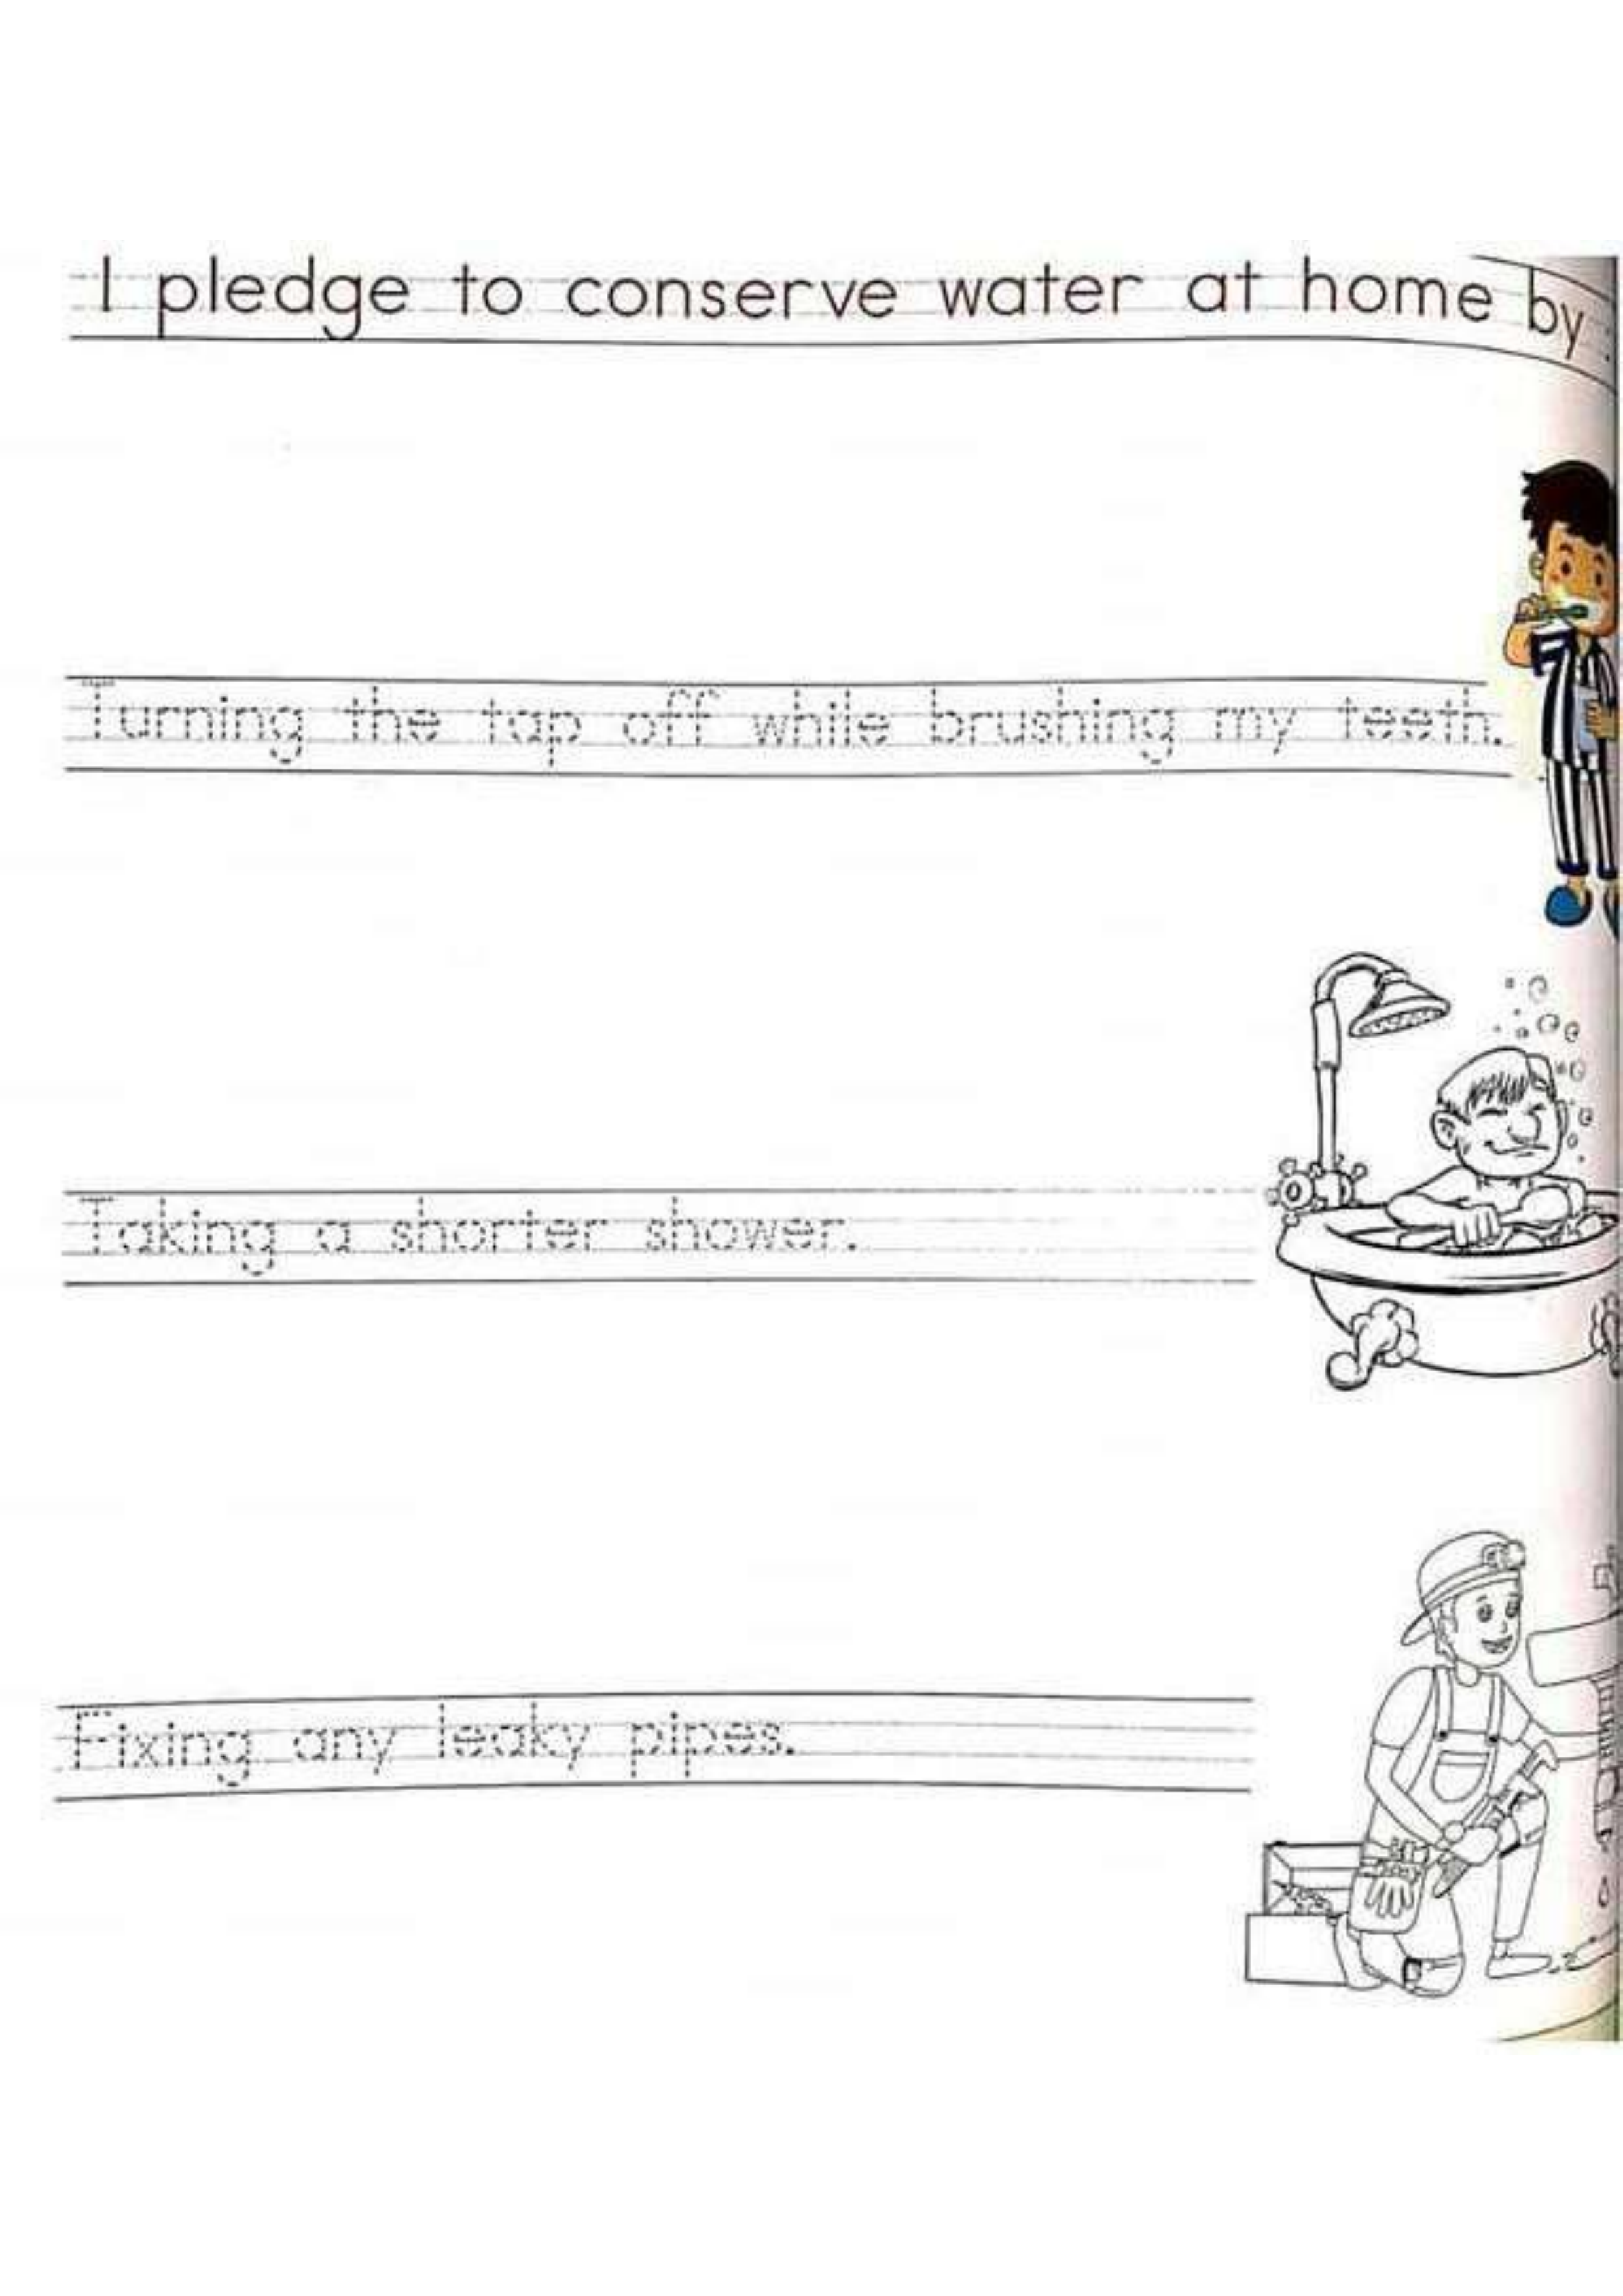 I pledge to conserve water at home by :
Turning the tap off while brushing my teeth.
Taking a shorter shower.
Fixing any leaky pipes.